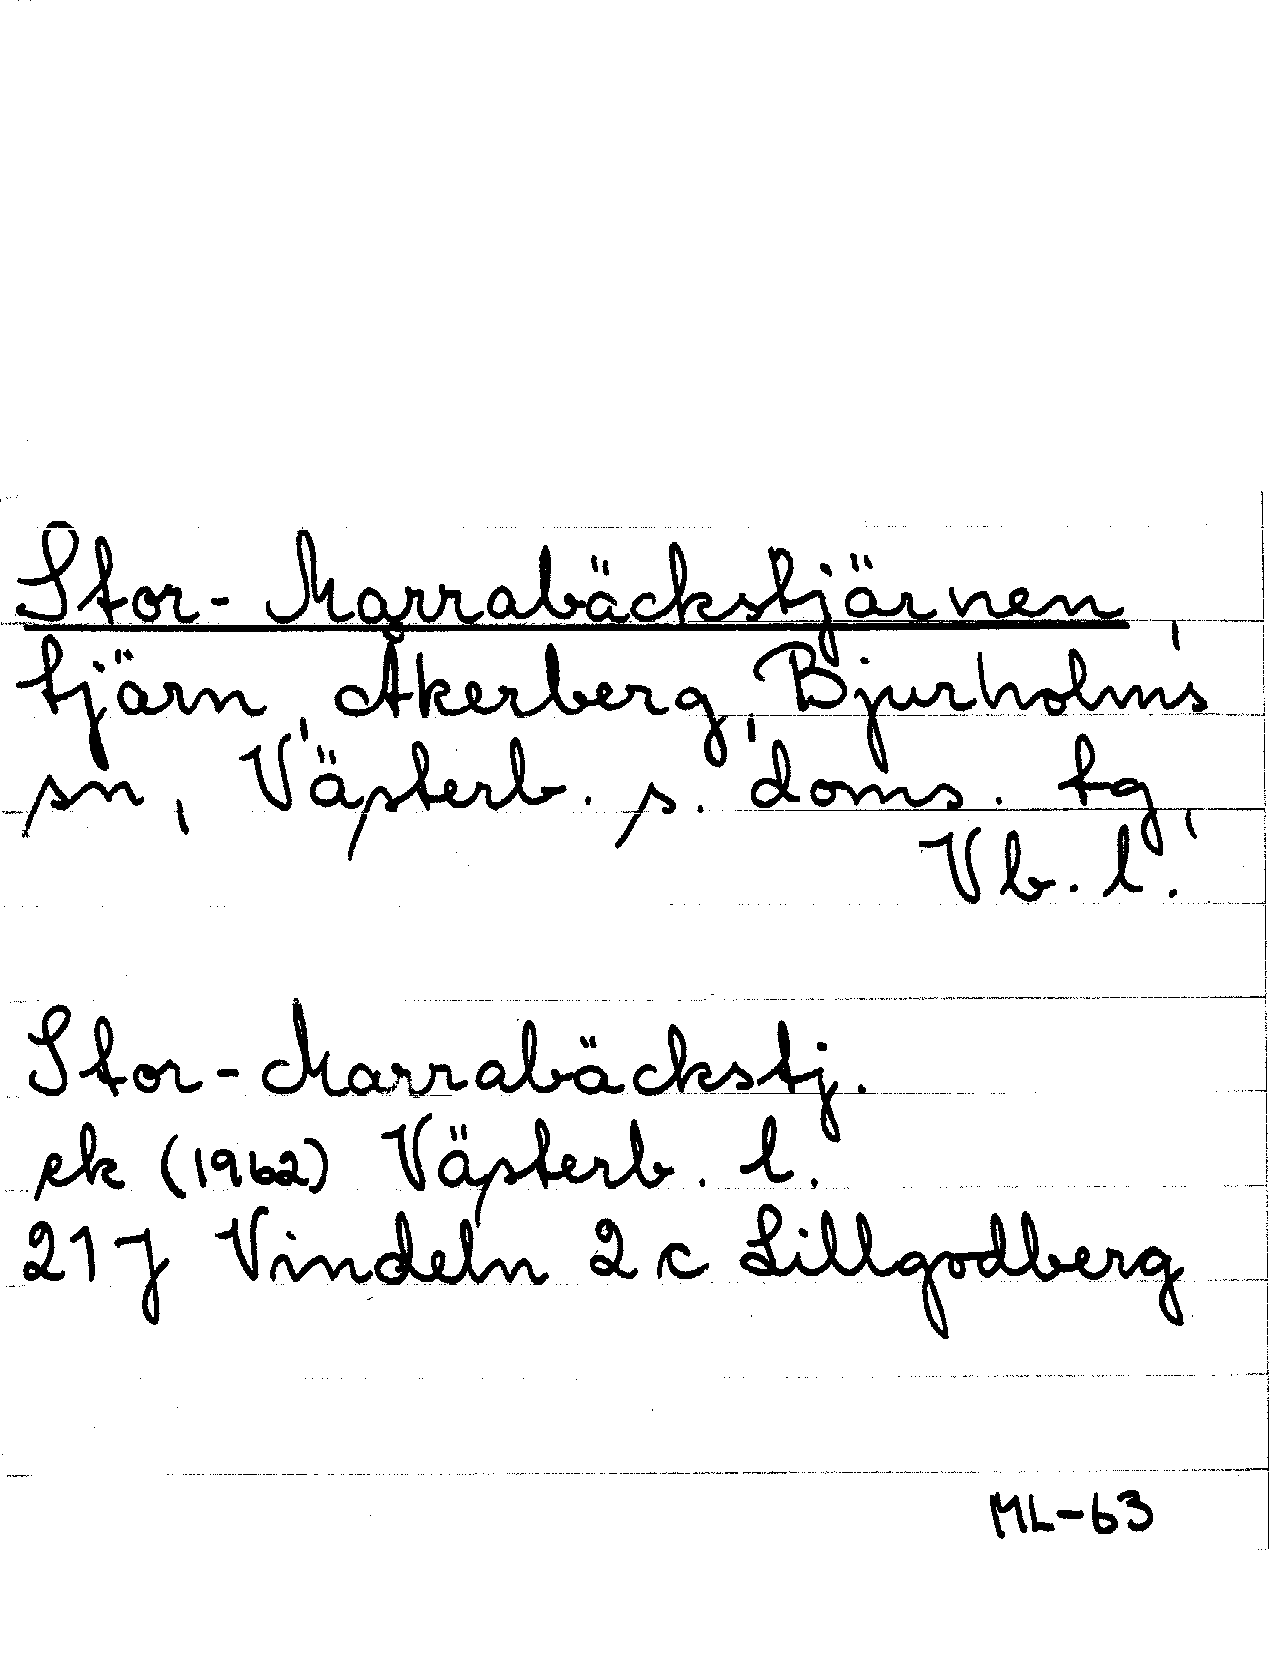 Stor-Marrabäckstjärnen,
tjärn, Åkerberg, Bjurholms
sn, Västerb. s. doms. tg,
Vb. l.
Stor-Marrabäckstj.
ek (1962) Västerb. l.
21 J Vindeln 2 c Lillgodberg
ML-63